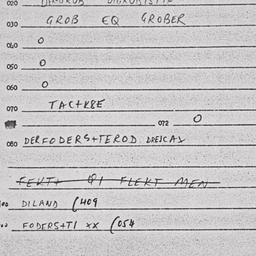 020
030 GROB EQ GROBER
040 O
050 O
060 O
070 TACTKRE
072 O
080 DERFODERS+TEROD
FEKT+ QI FLEKT MEN
DILAND (409
FODERS+TI XX (054